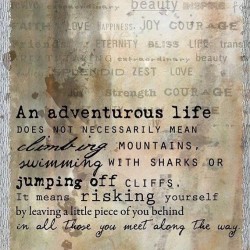 extraordinary beauty
FAITH LOVE HAPPINESS JOY COURAGE
FRIENDS ETERNITY BLISS LIFE
extraordinary beauty
BEHOLD ZEST LOVE
JOY Strength COURAGE
An adventurous life
DOES NOT NECESSARILY MEAN
climbing MOUNTAINS,
swimming WITH SHARKS OR
jumping off CLIFFS.
It means risking yourself
by leaving a little piece of you behind
in all those you meet along the way